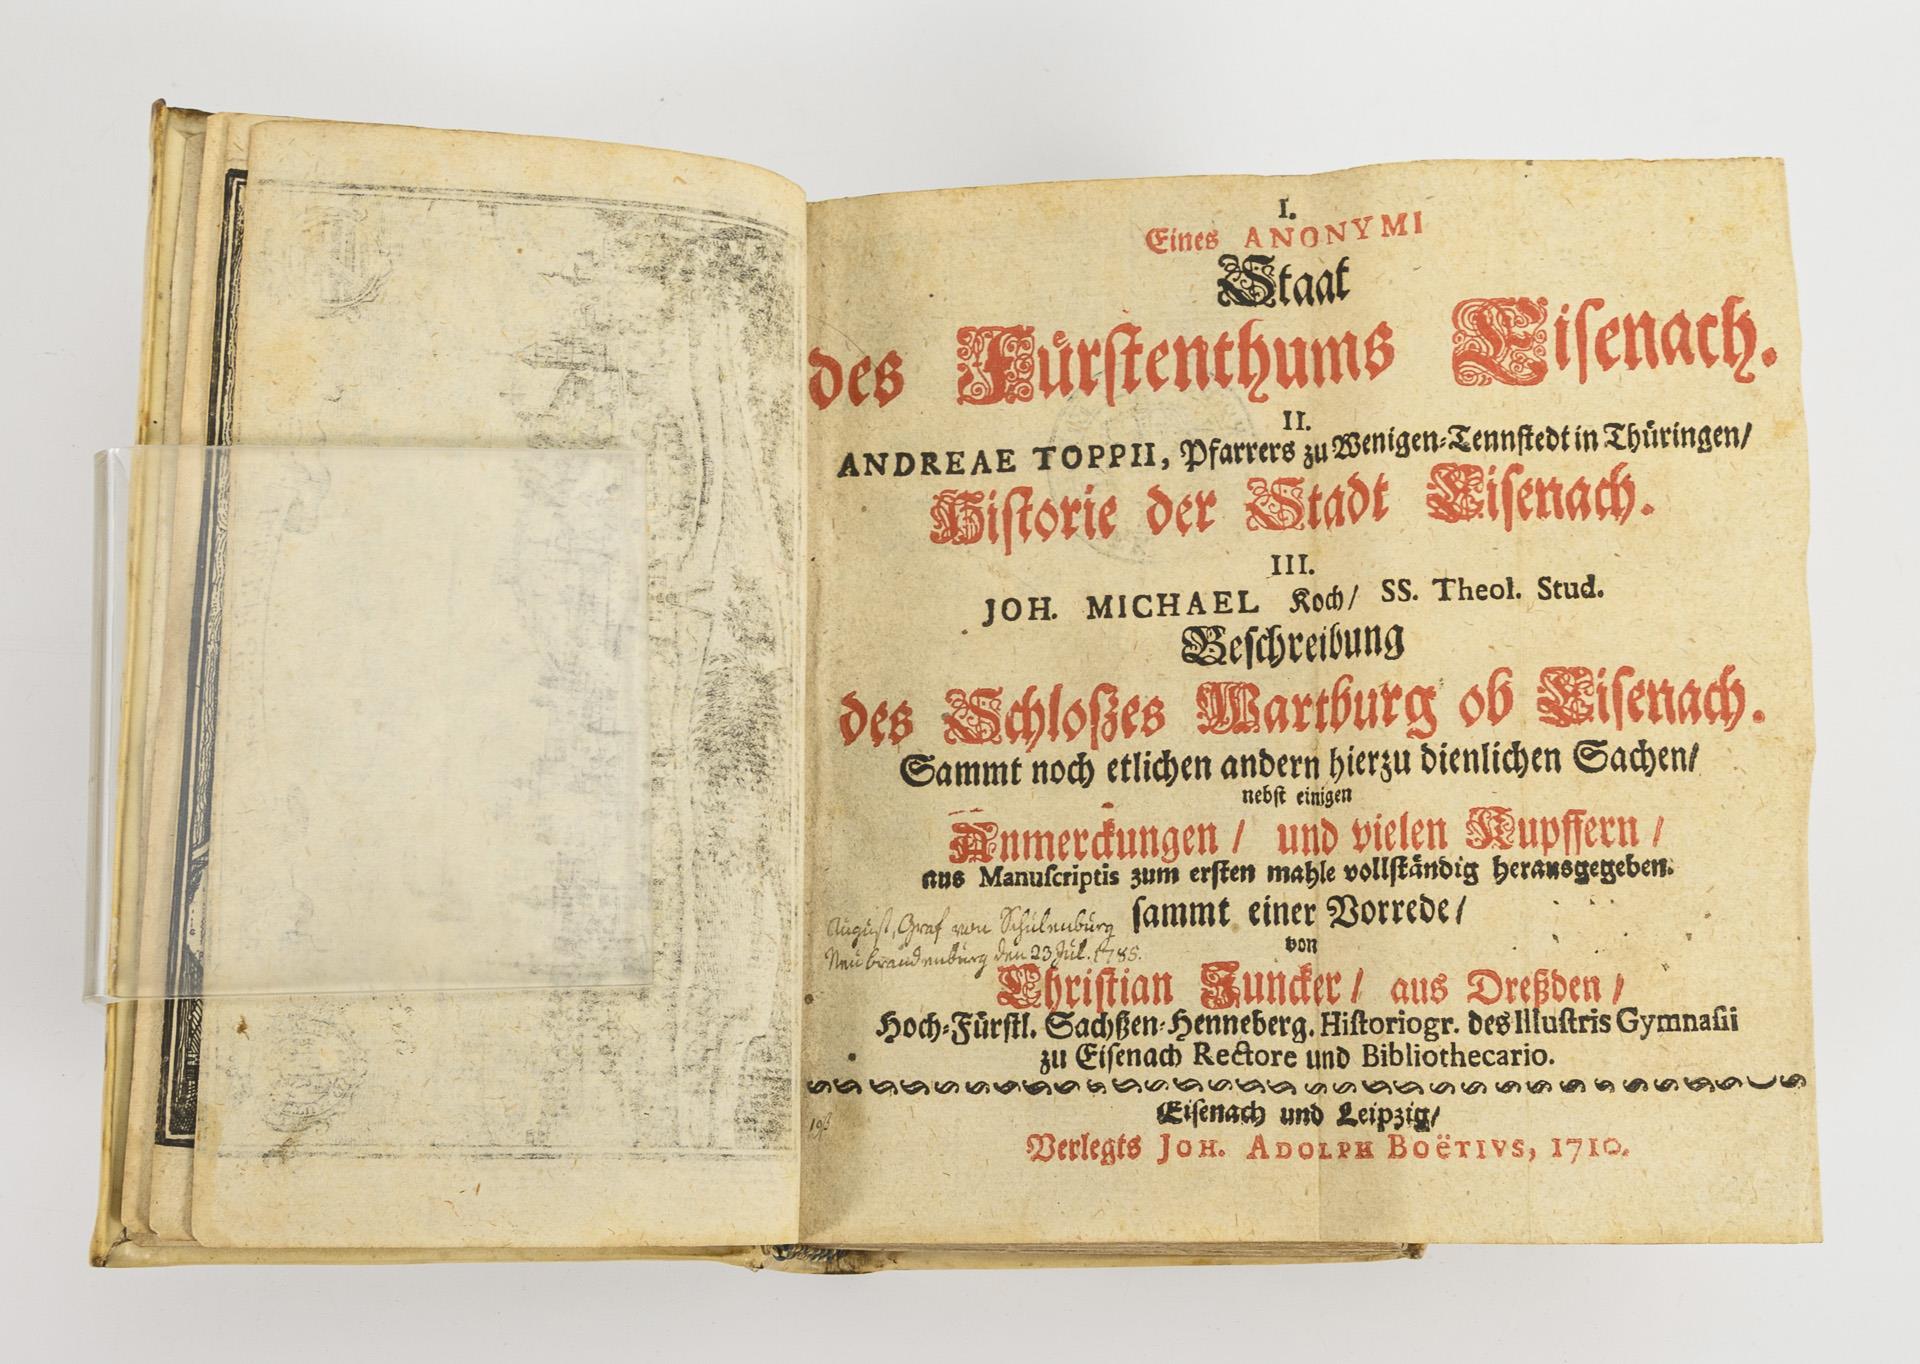 I.
Eines ANONYMI
Staat
des Fürstenthums Eisenach.
II.
ANDREAE TOPPII, Pfarrers zu Wenigen-Tennstedt in Thüringen/
Historie der Stadt Eisenach.
III.
JOH. MICHAEL Koch/ SS. Theol. Stud.
Beschreibung
des Schloßes Wartburg ob Eisenach.
Sammt noch etlichen andern hierzu dienlichen Sachen/
nebst einigen
Anmerckungen / und vielen Kupffern /
aus Manuſcriptis zum ersten mahle vollständig herausgegeben.
sammt einer Vorrede/
August, Graf von Schulenburg
von
Neubrandenburg den 23 Jul. 1785.
Christian Juncker / aus Dreßden /
Hoch-Fürstl. Sachßen-Henneberg. Hiſtoriogr. des Illuſtris Gymnaſii
zu Eisenach Rectore und Bibliothecario.
Eisenach und Leipzig/
Verlegts JOH. ADOLPH BOËTIVS, 1710.